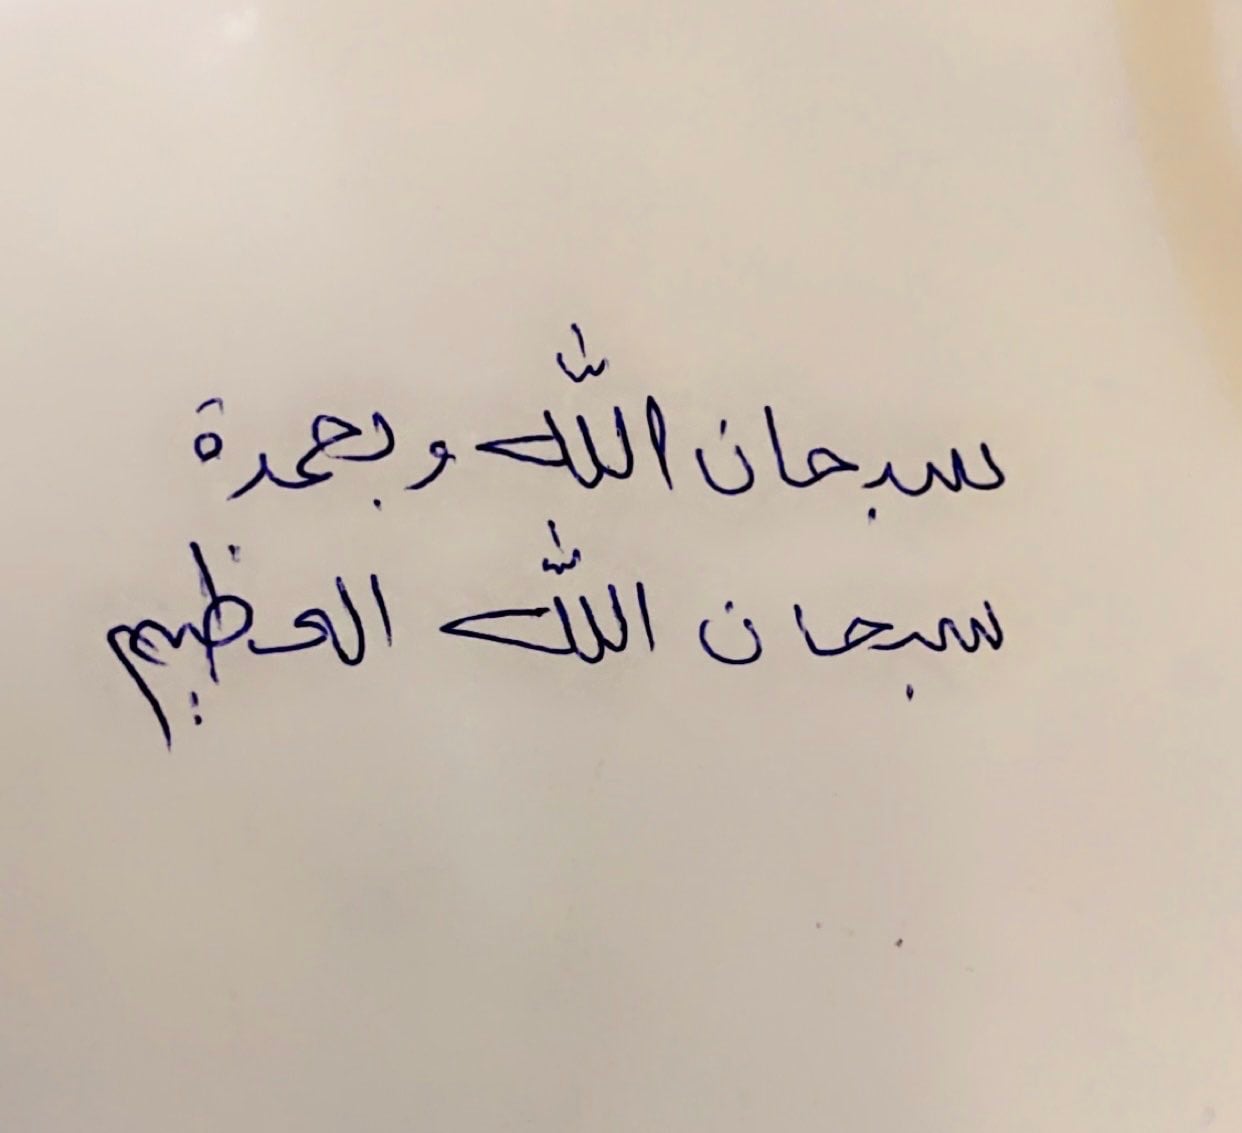 سبحان اللّه وبحمدة
سبحان اللّه العظيم